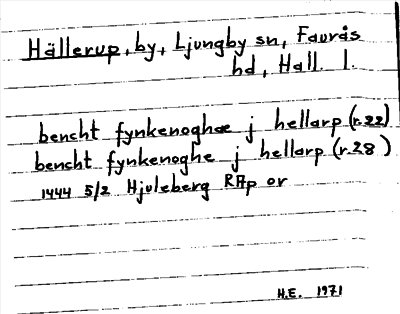 Hällerup, by, Ljungby sn, Faurås
hd, Hall. l.
bencht fynkenoghæ j hellarp (r.22)
bencht fynkenoghe j hellarp (r.28)
1444 5/2 Hjuleberg RAp or
H.E. 1971